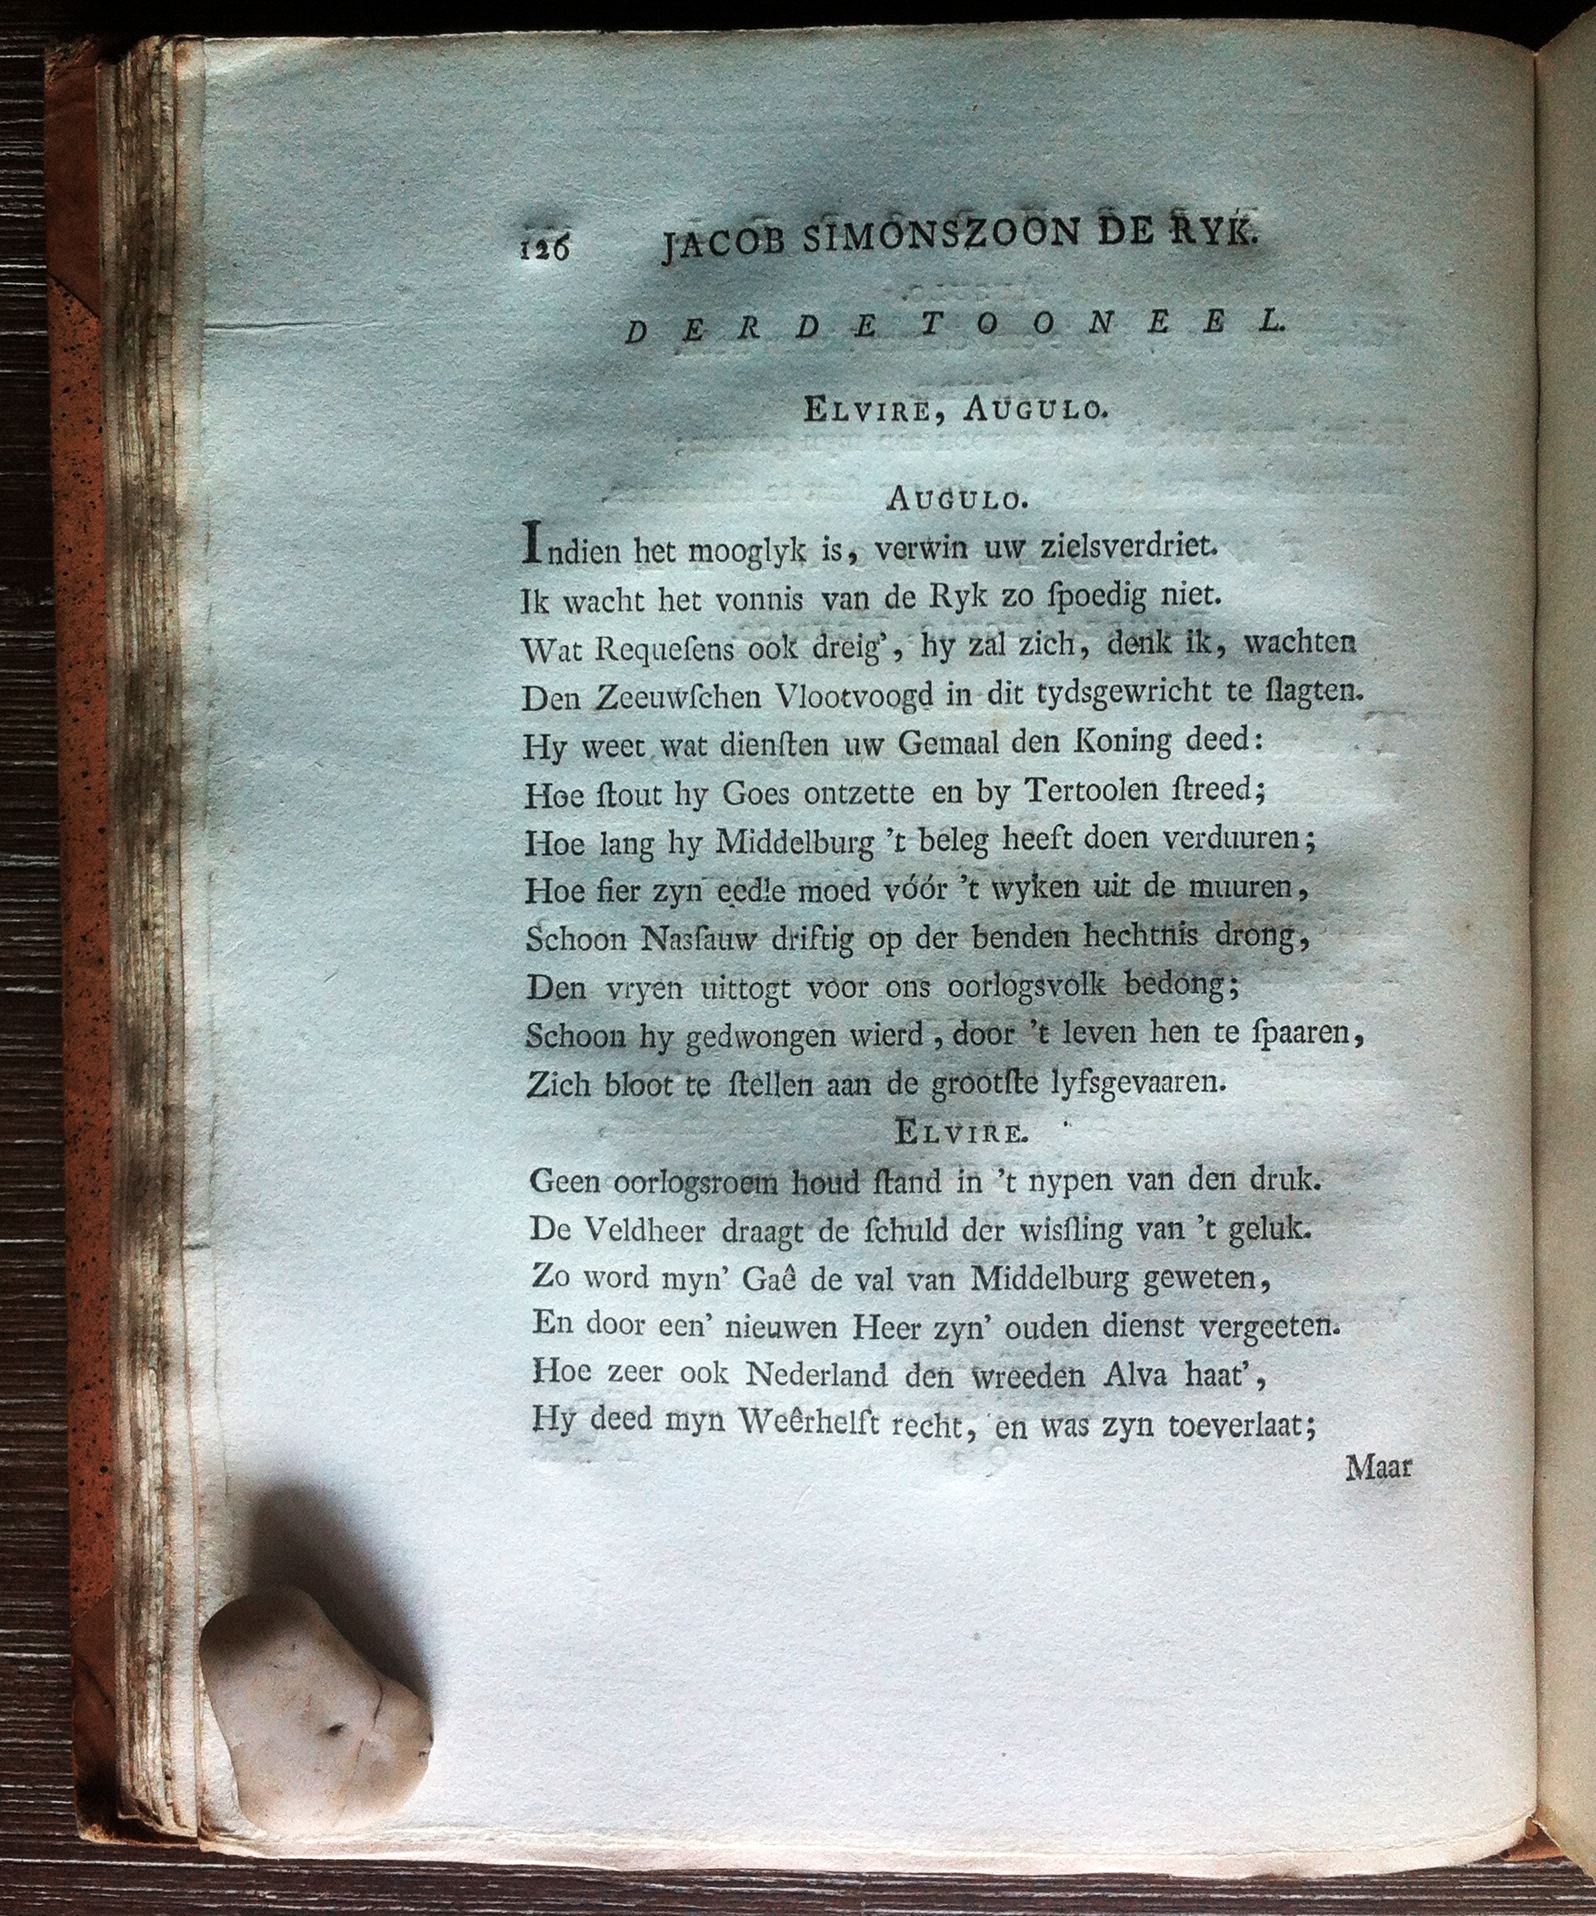 126 JACOB SIMONSZOON DE RYK.
DERDE TOONEEL.
ELVIRE, AUGULO.
AUGULO.
Indien het mooglyk is, verwin uw zielsverdriet.
Ik wacht het vonnis van de Ryk zo ſpoedig niet.
Wat Requeſens ook dreig’, hy zal zich, denk ik, wachten
Den Zeeuwſchen Vlootvoogd in dit tydsgewricht te ſlagten.
Hy weet wat dienſten uw Gemaal den Koning deed:
Hoe ſtout hy Goes ontzette en by Tertoolen ſtreed;
Hoe lang hy Middelburg ’t beleg heeft doen verduuren;
Hoe fier zyn eedle moed vóór ’t wyken uit de muuren,
Schoon Nasſauw driftig op der benden hechtnis drong,
Den vryen uittogt voor ons oorlogsvolk bedong;
Schoon hy gedwongen wierd, door ’t leven hen te ſpaaren,
Zich bloot te ſtellen aan de grootſte lyfsgevaaren.
ELVIRE.
Geen oorlogsroem houd ſtand in ’t nypen van den druk.
De Veldheer draagt de ſchuld der wisſling van ’t geluk.
Zo word myn’ Gaê de val van Middelburg geweten,
En door een’ nieuwen Heer zyn’ ouden dienst vergeeten.
Hoe zeer ook Nederland den wreeden Alva haat’,
Hy deed myn Weêrhelft recht, en was zyn toeverlaat;
Maar